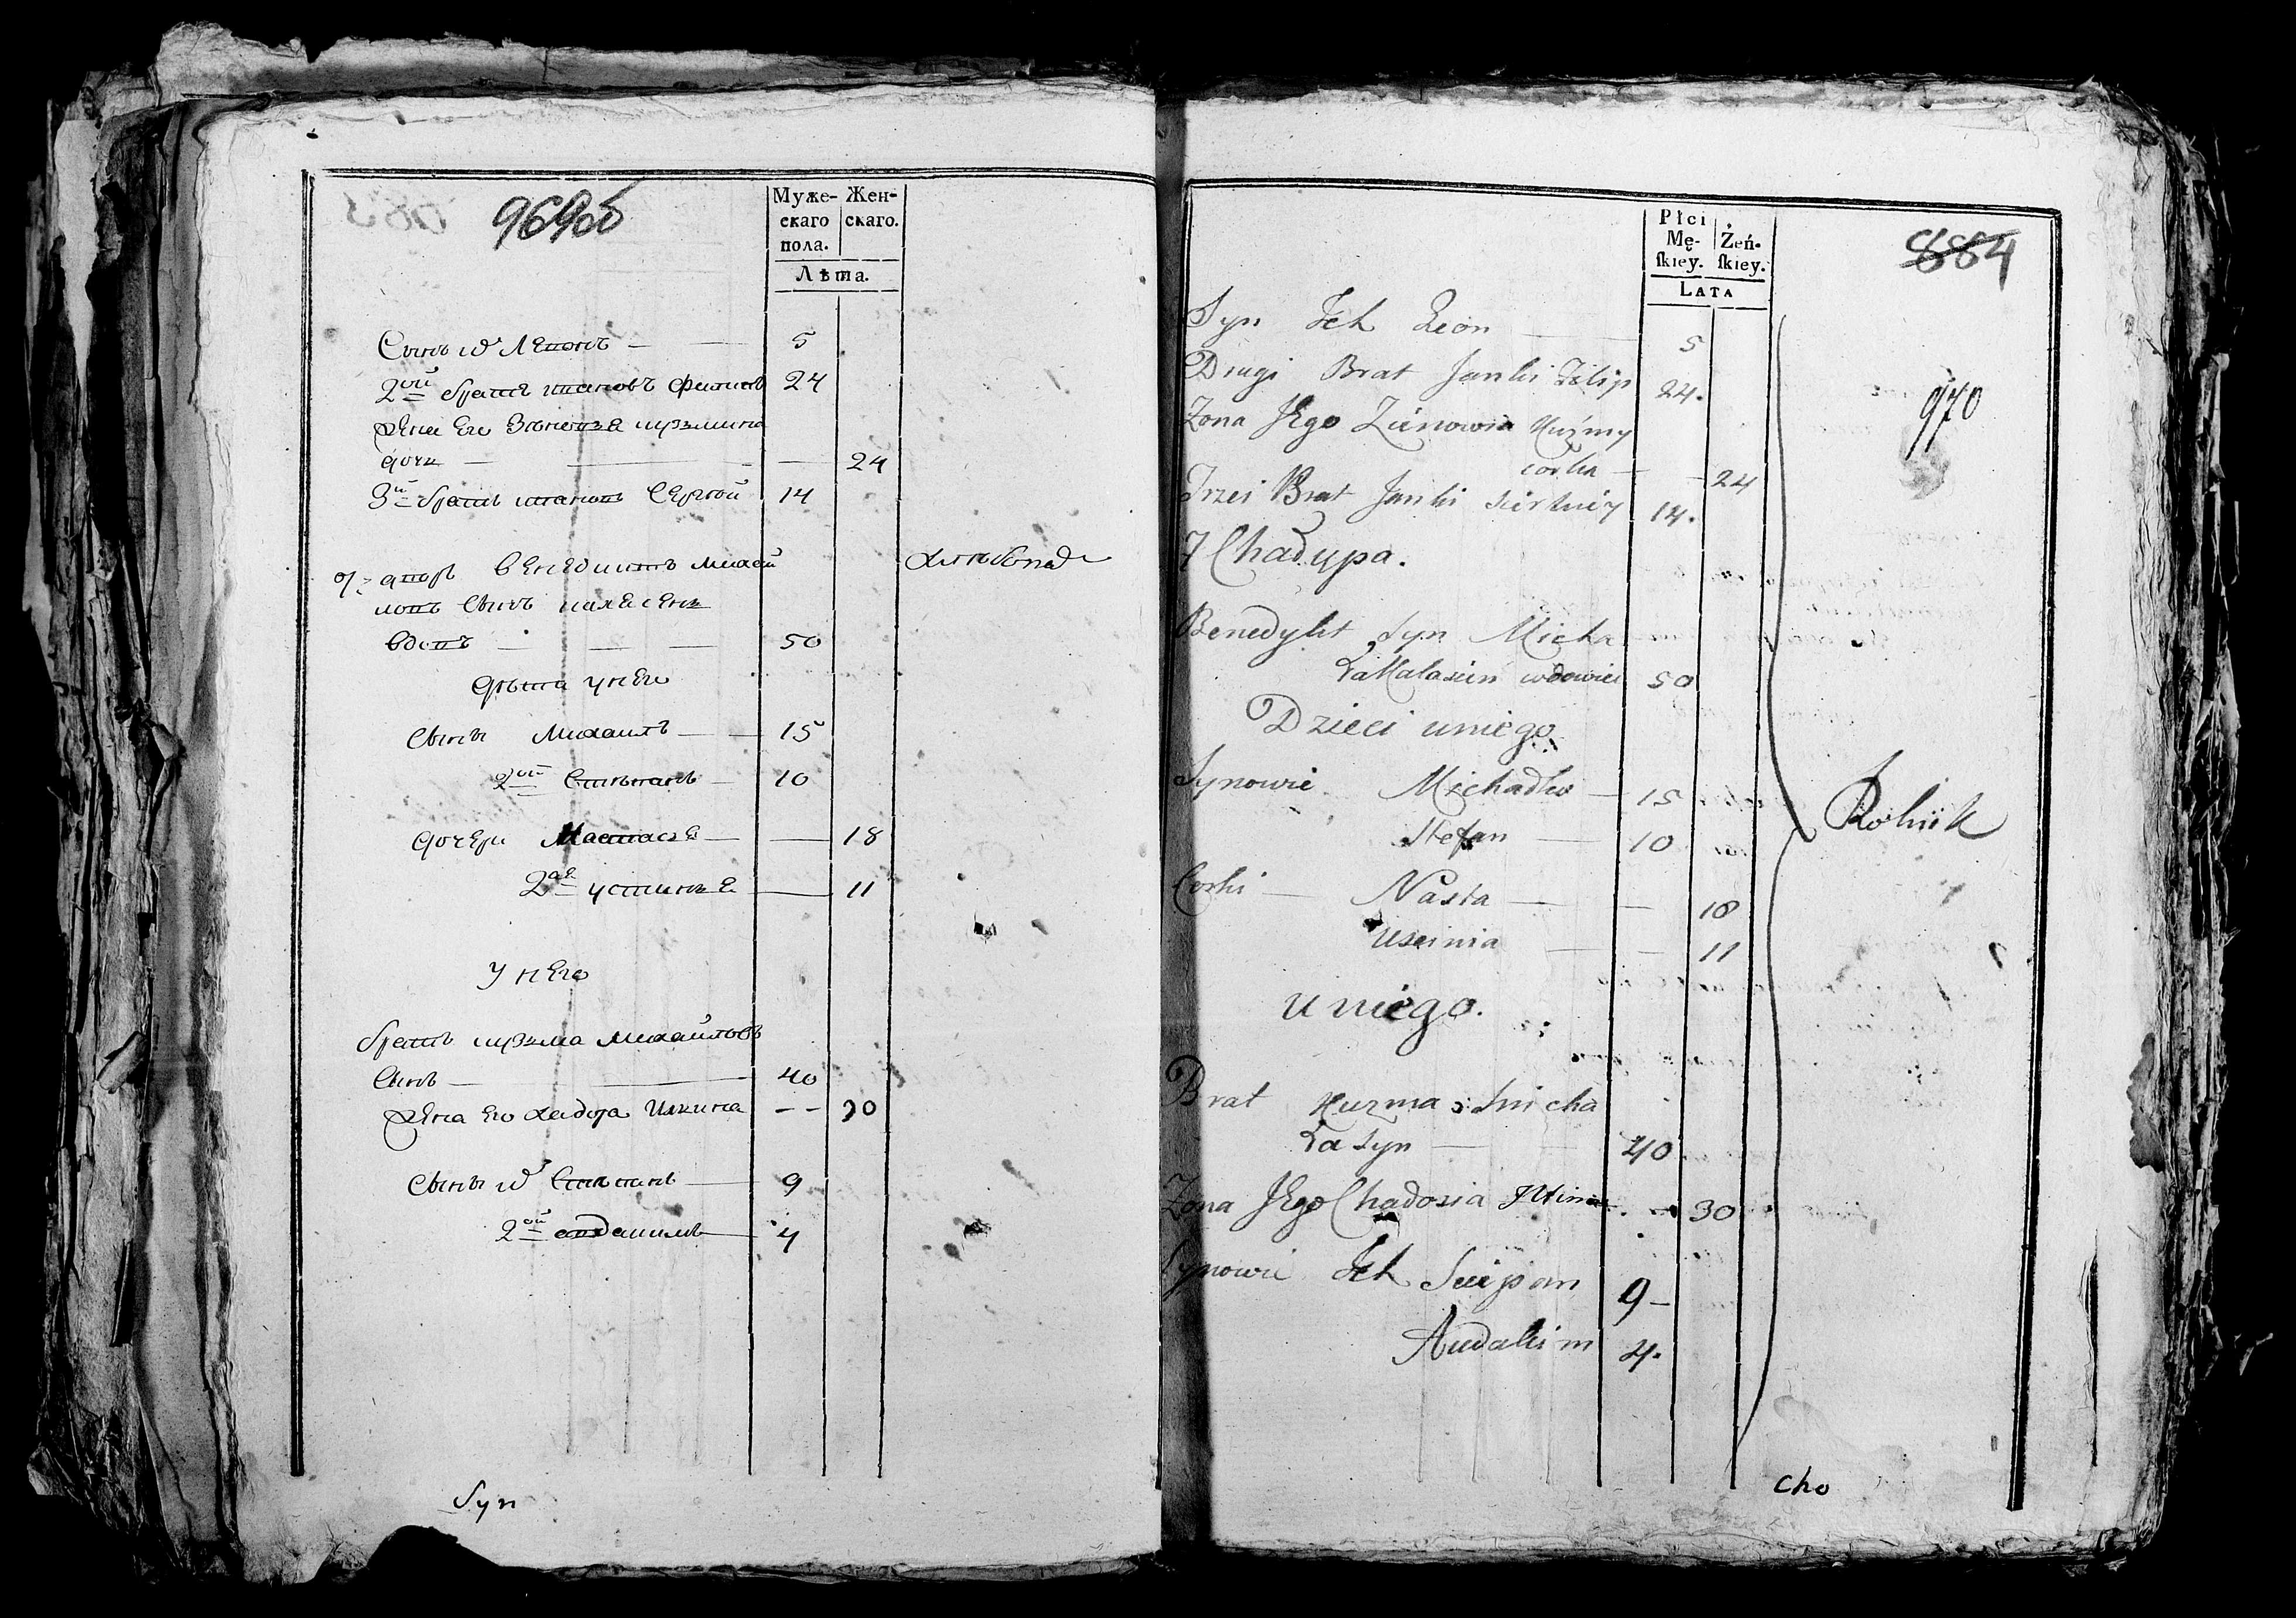 969об
Муже-
скаго
пола.
Жен-
скаго.
Лѣта.
Сынъ их Леонъ — 5
2ой братъ Филипъ 24
жена Его Зѣновья кузьмина
дочь — — 24
3й братъ Сергѣй 14
7: дворъ Венедиктъ михай
ловъ Сынъ
вдовъ — 50
Дѣти у него
Сыны Михаилъ — 15
2ой Степанъ — 10
Дочери Настасья — — 18
2ая устинья — 11
у него
братъ кузьма михайловъ
Сынъ — 40
жена Его Хадора Илкина — — 30
Сыны их Степанъ — 9
2ой — 4
Хлѣбопад
Syn
Płci
Mę-
ſkiey.
Żeń-
ſkiey.
LATA
884
970
Syn Ich Leon — 5
Drugi Brat Janki Filip 24.
Zona JEgo Zienowia Kuźmy
corka — — 24
Trzei Brat Janki 14.
7 Chadupa.
Benedykt Syn Micha
ła Małasien wdowiec 50
Dzieci uniego
Synowie Michadko — 15
Stefan — 10
Corki — Nasta — — 18
Uscinia — — 11
uniego.
Brat Kuzma Micha
ła Syn — 40
Zona JEgo Chadosia — 30
Synowie Ich Sciepan 9 —
Audakim 4.
Rolnik
cho